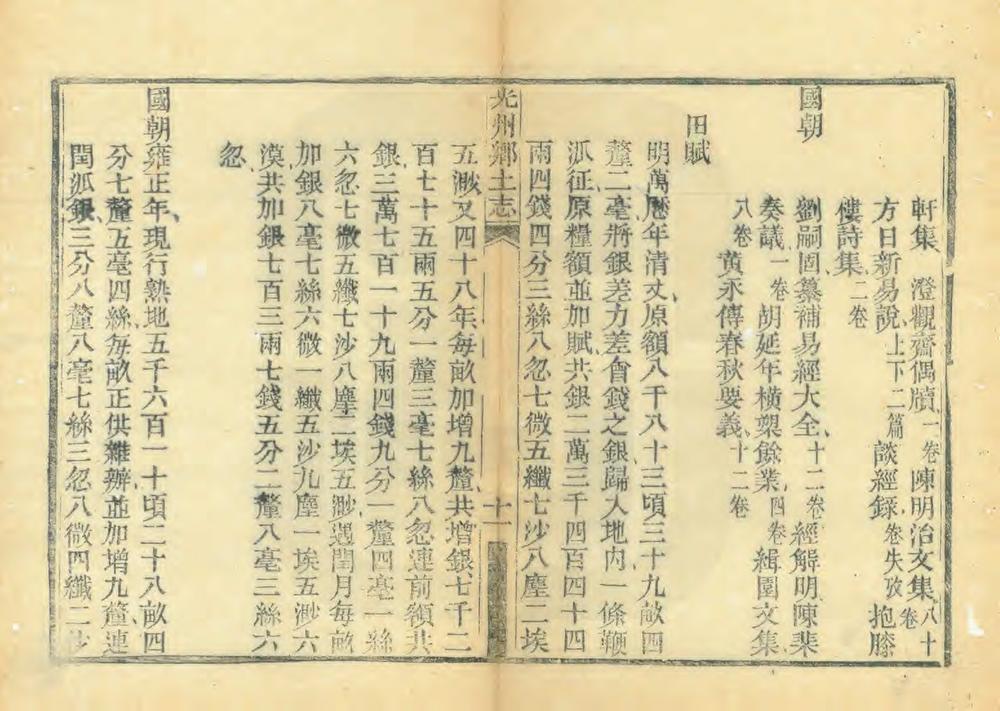 軒集　澄觀齋偶牘一卷　陳明治文集八十卷
方日新易說上下二篇　談經錄卷失攷　抱膝
樓詩集二卷
國朝
劉嗣固纂補易經大全十二卷　經解明陳棐
奏議一卷　胡延年橫槊餘業四卷　緝園文集
八卷　黃永傳春秋要義十二卷
田賦
明萬曆年清丈原額八千八十三頃三十九畝四
釐二毫將銀差力差會錢之銀歸入地內一條鞭
派征原糧額並加賦共銀二萬三千四百四十四
兩四錢四分三絲八忽七微五纖七沙八塵二埃
光州鄉土志
十一
五渺又四十八年每畝加增九釐共增銀七千二
百七十五兩五分一釐三毫七絲八忽連前額共
銀三萬七百一十九兩四錢九分一釐四毫一絲
六忽七微五纖七沙八塵二埃五渺遇閏月每畝
加銀八毫七絲六微一纖五沙九塵一埃五渺六
漠共加銀七百三兩七錢五分二釐八毫三絲六
忽
國朝雍正年現行熟地五千六百一十頃二十八畝四
分七釐五毫四絲每畝正供雜辦並加增九釐連
閏派銀三分八釐八毫七絲三忽八微四纖二沙